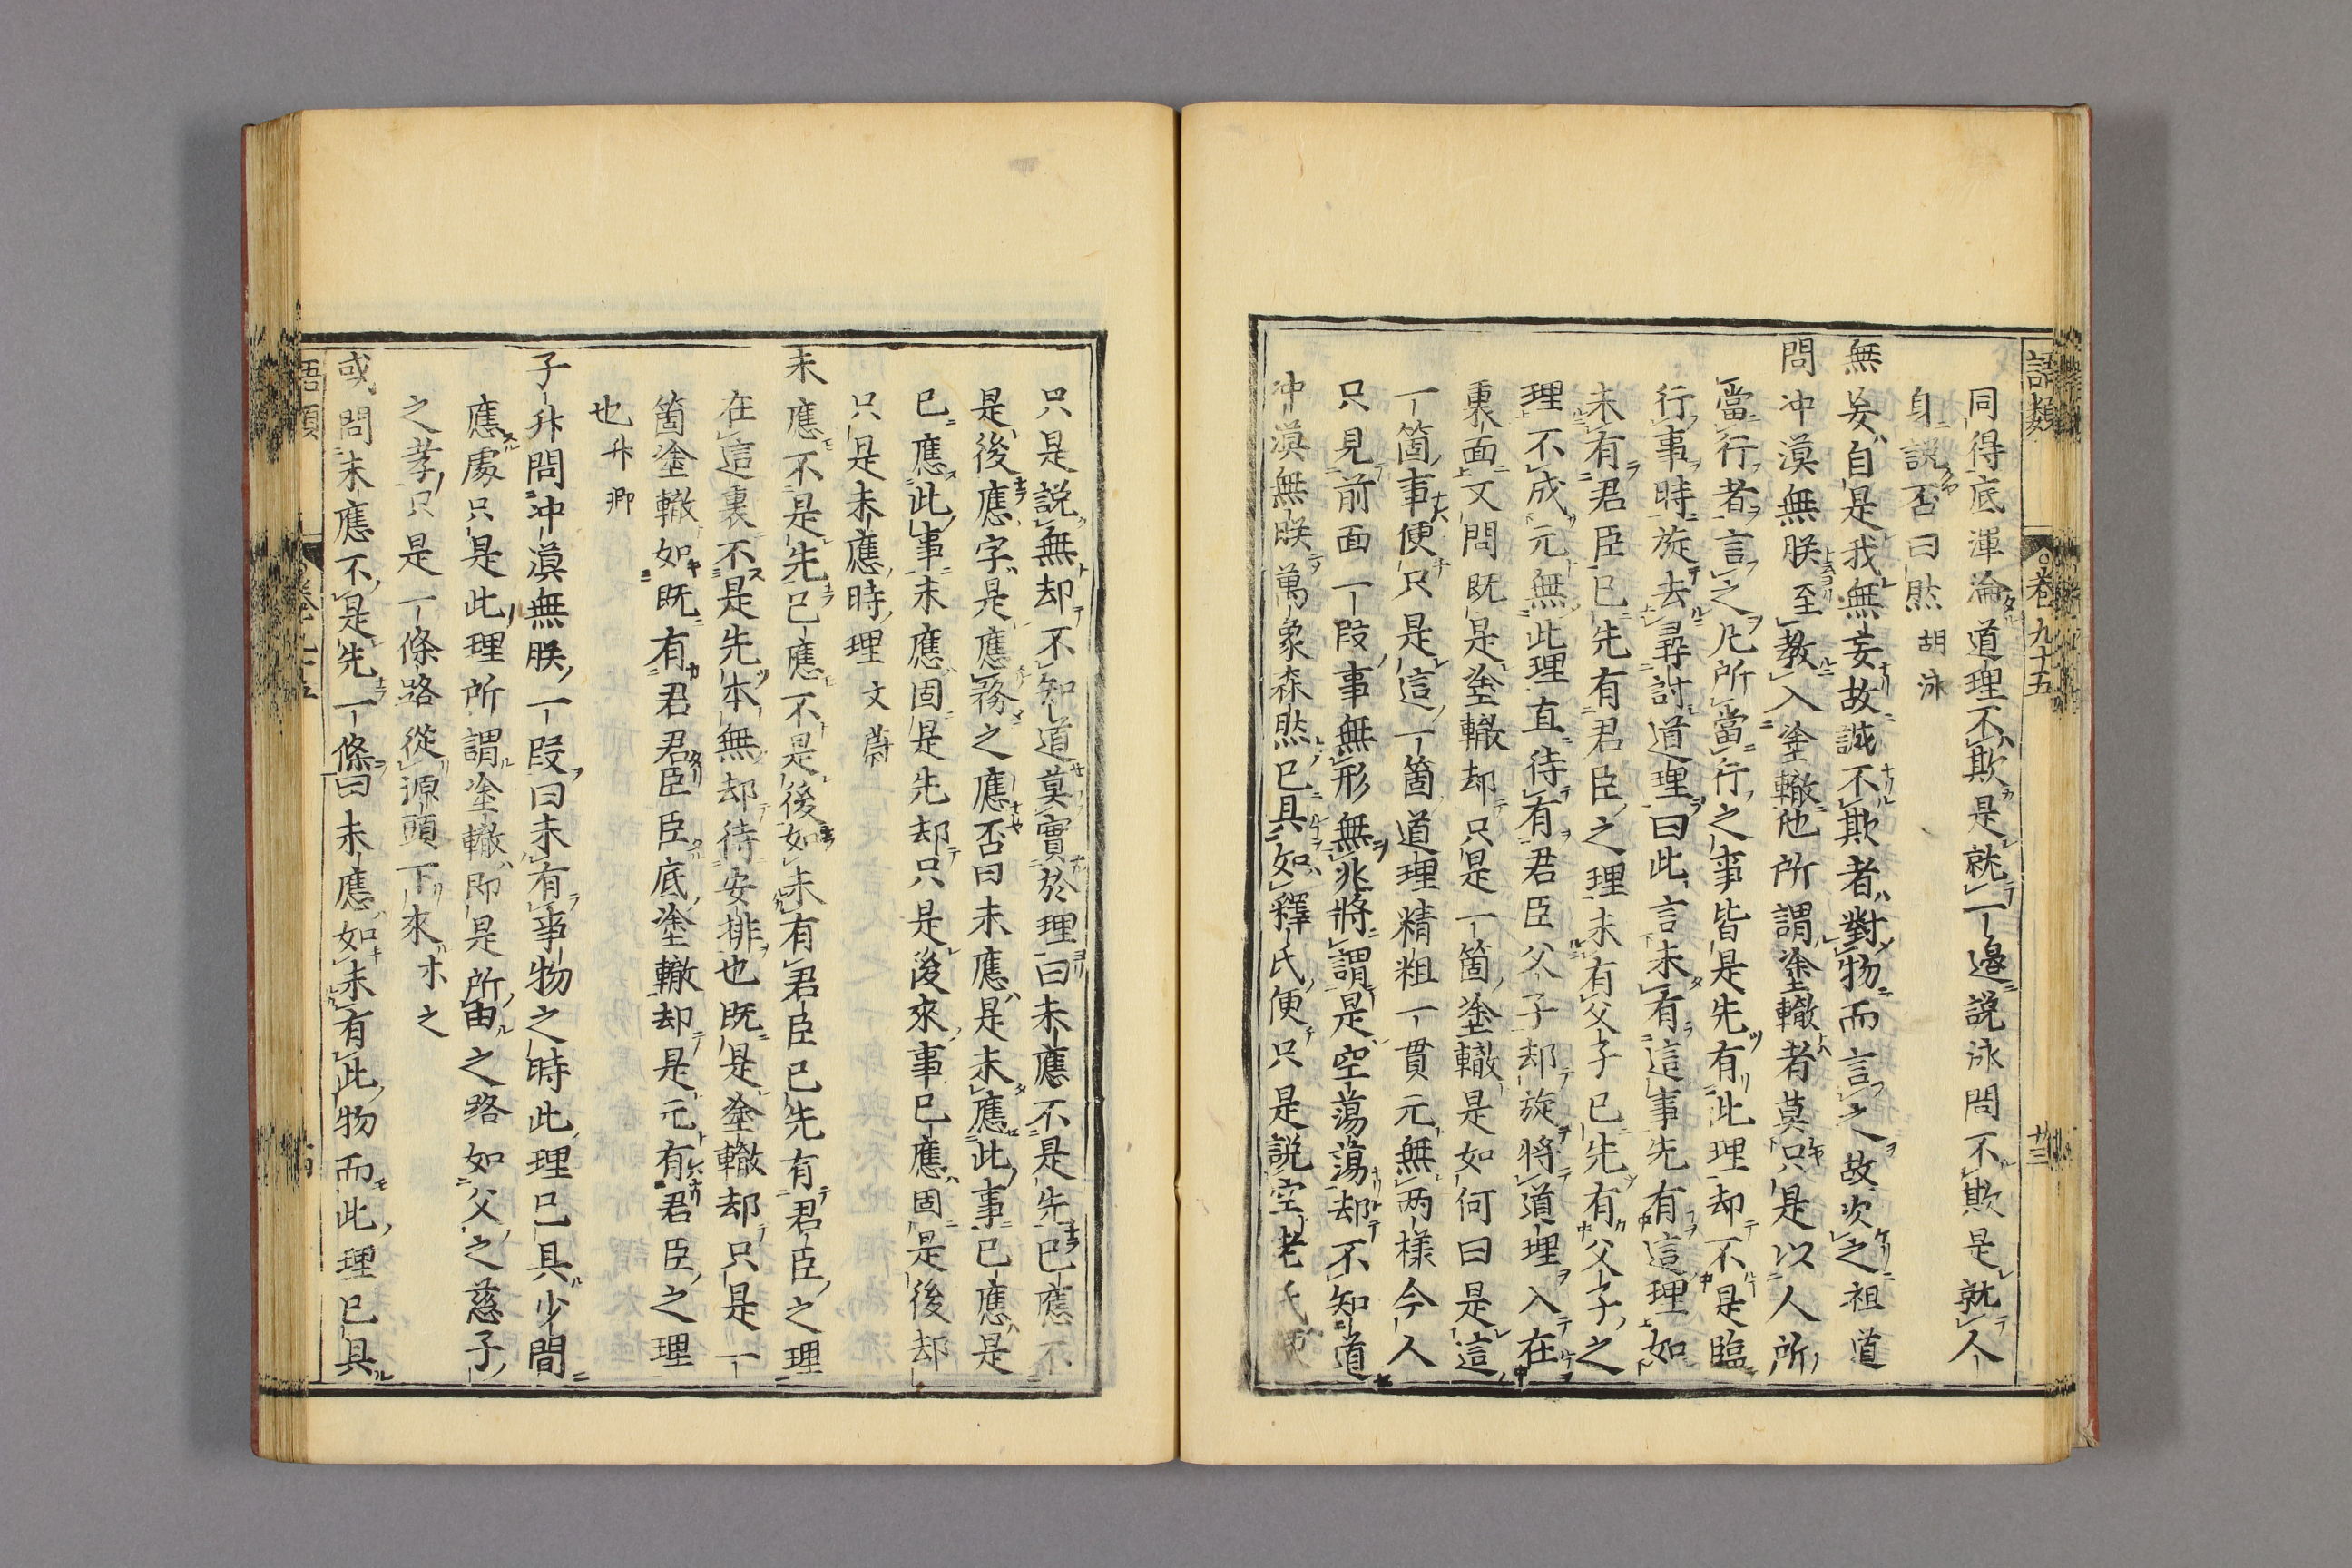 語類
卷九十五
廿三
同得底渾淪道理不欺是就一邉説泳問不欺是就人
身説否曰然胡泳
無妄自是我無妄故誠不欺者對物而言之故次之祖道
問冲漠無朕至教入塗轍他所謂塗轍者莫只是以人所
當行者言之凡所當行之事皆是先有此理却不是臨
行事時旋去尋討道理曰此言未有這事先有這理如
未有君臣已先有君臣之理未有父子已先有父子之
理不成元無此理直待有君臣父子却旋將道理入在
裏面又問既是塗轍却只是一箇塗轍是如何曰是這
一箇事便只是這一箇道理精粗一貫元無两様今人
只見前面一段事無形無兆將謂是空蕩蕩却不知道
冲漠無朕萬象森然已具如釋氏便只是説空老氏便
只是説無却不知道莫實於理曰未應不是先已應不
是後應字是應務之應否曰未應是未應此事已應是
已應此事未應固是先却只是後來事已應固是後却
只是未應時理文蔚
未應不是先已應不是後如未有君臣已先有君臣之理
在這裏不是先本無却待安排也既是塗轍却只是一
箇塗轍如既有君君臣臣底塗轍却是元有君臣之理
也升卿
子升問冲漠無朕一段曰未有事物之時此理已具少間
應處只是此理所謂塗轍即是所由之路如父之慈子
之孝只是一條路從源頭下來木之
或問未應不是先一條曰未應如未有此物而此理已具
語類